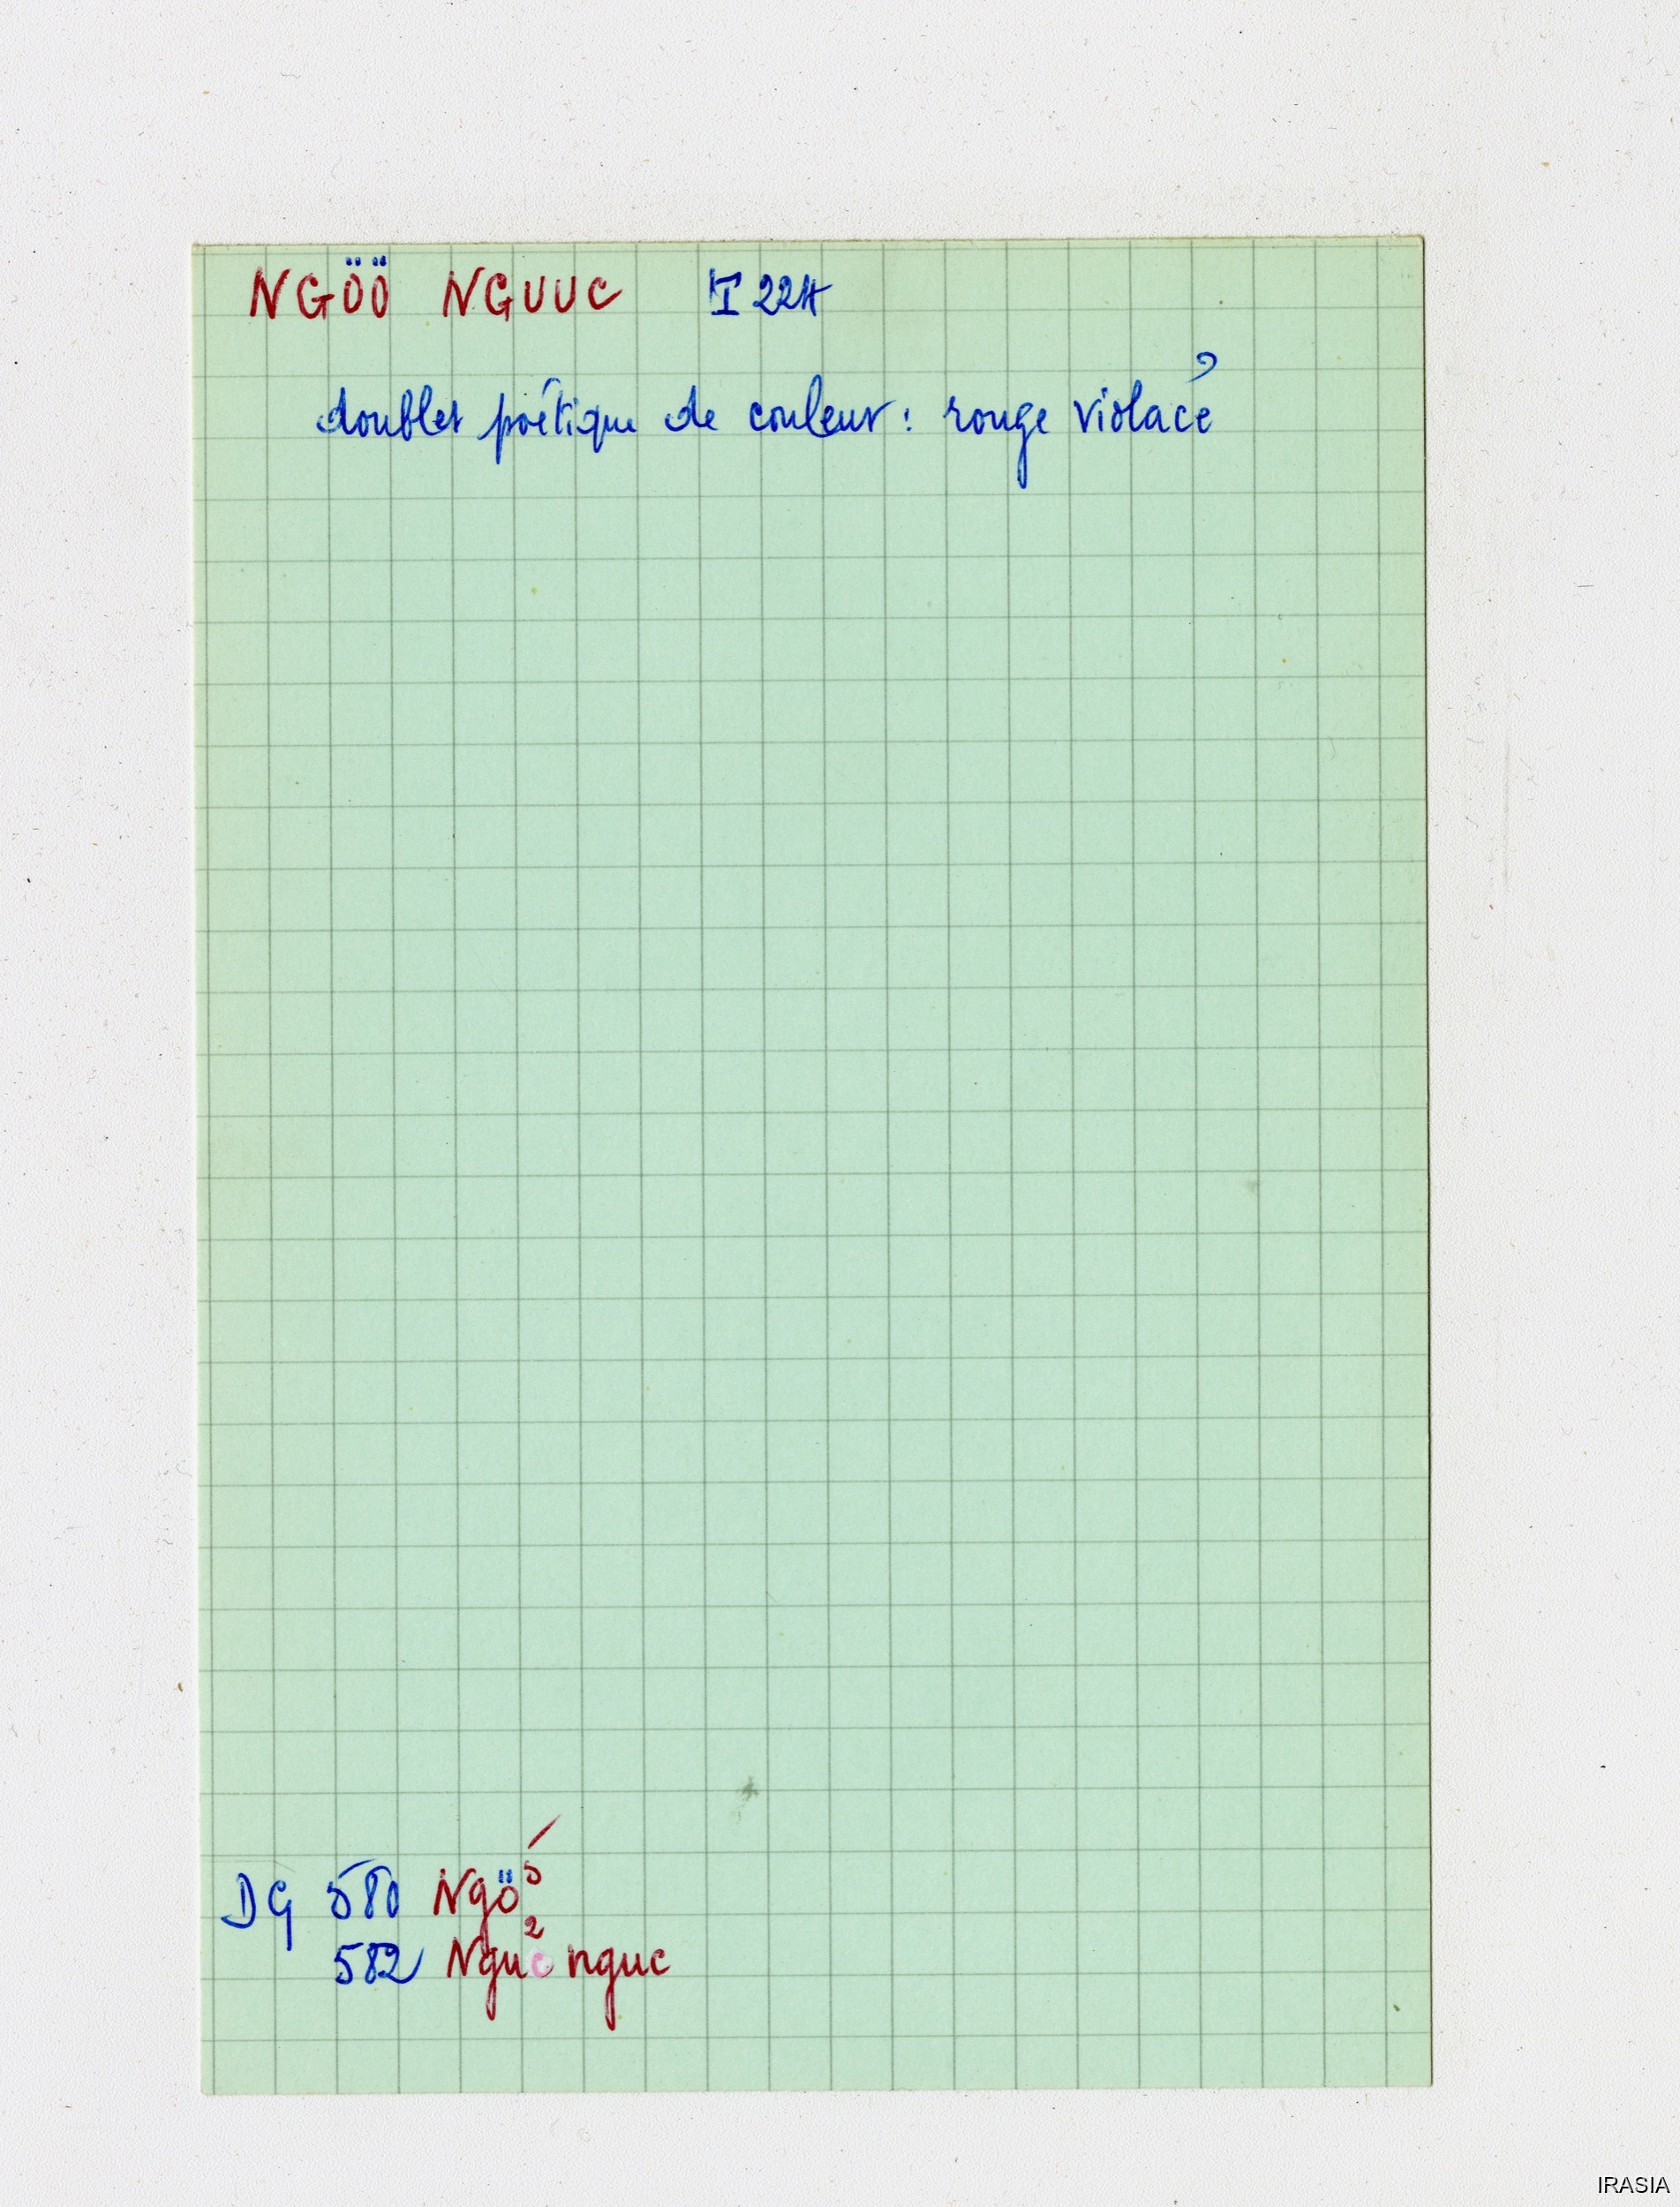 NGÖÖ NGUUC I 224
doublet poétique de couleur : rouge violacé
DG 580 Ngö⁵
582 Nguc² nguc
IRASIA